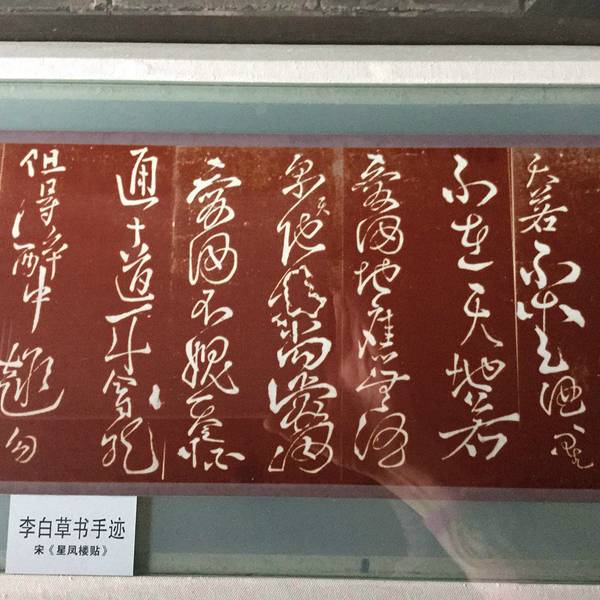 天若不愛酒酒星
不在天地若
愛酒地應無酒
泉天地既尚愛酒
愛酒不愧天三杯
通大道一斗合自然
但得醉中趣勿
李白草书手迹
宋《星凤楼贴》